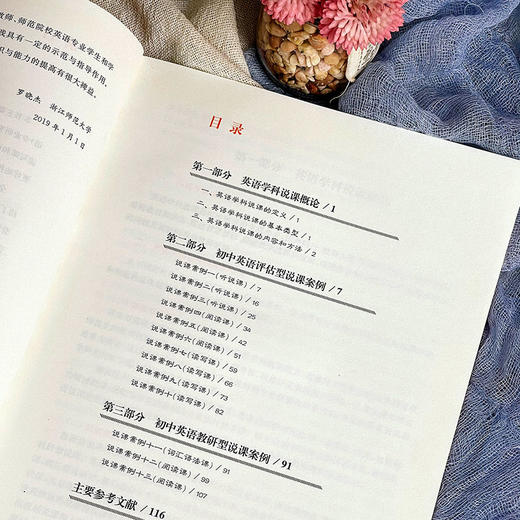 教师、师范院校英语专业学生和学
践具有一定的示范与指导作用，
识与能力的提高有很大裨益。
罗晓杰 浙江师范大学
2019年1月1日
目录
第一部分 英语学科说课概论 / 1
一、英语学科说课的定义 / 1
二、英语学科说课的基本类型 / 1
三、英语学科说课的内容和方法 / 2
第二部分 初中英语评估型说课案例 / 7
说课案例一(听说课) / 7
说课案例二(听说课) / 16
说课案例三(听说课) / 25
说课案例四(阅读课) / 34
说课案例五(阅读课) / 42
说课案例六(阅读课) / 51
说课案例七(读写课) / 59
说课案例八(读写课) / 66
说课案例九(读写课) / 73
说课案例十(读写课) / 82
第三部分 初中英语教研型说课案例 / 91
说课案例十一(词汇语法课) / 91
说课案例十二(阅读课) / 99
说课案例十三(阅读课) / 107
主要参考文献 / 116